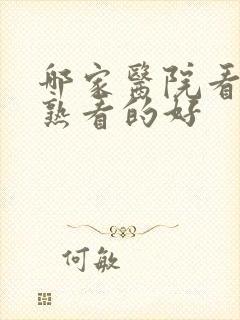 哪家醫院看
熟看的好
何敏